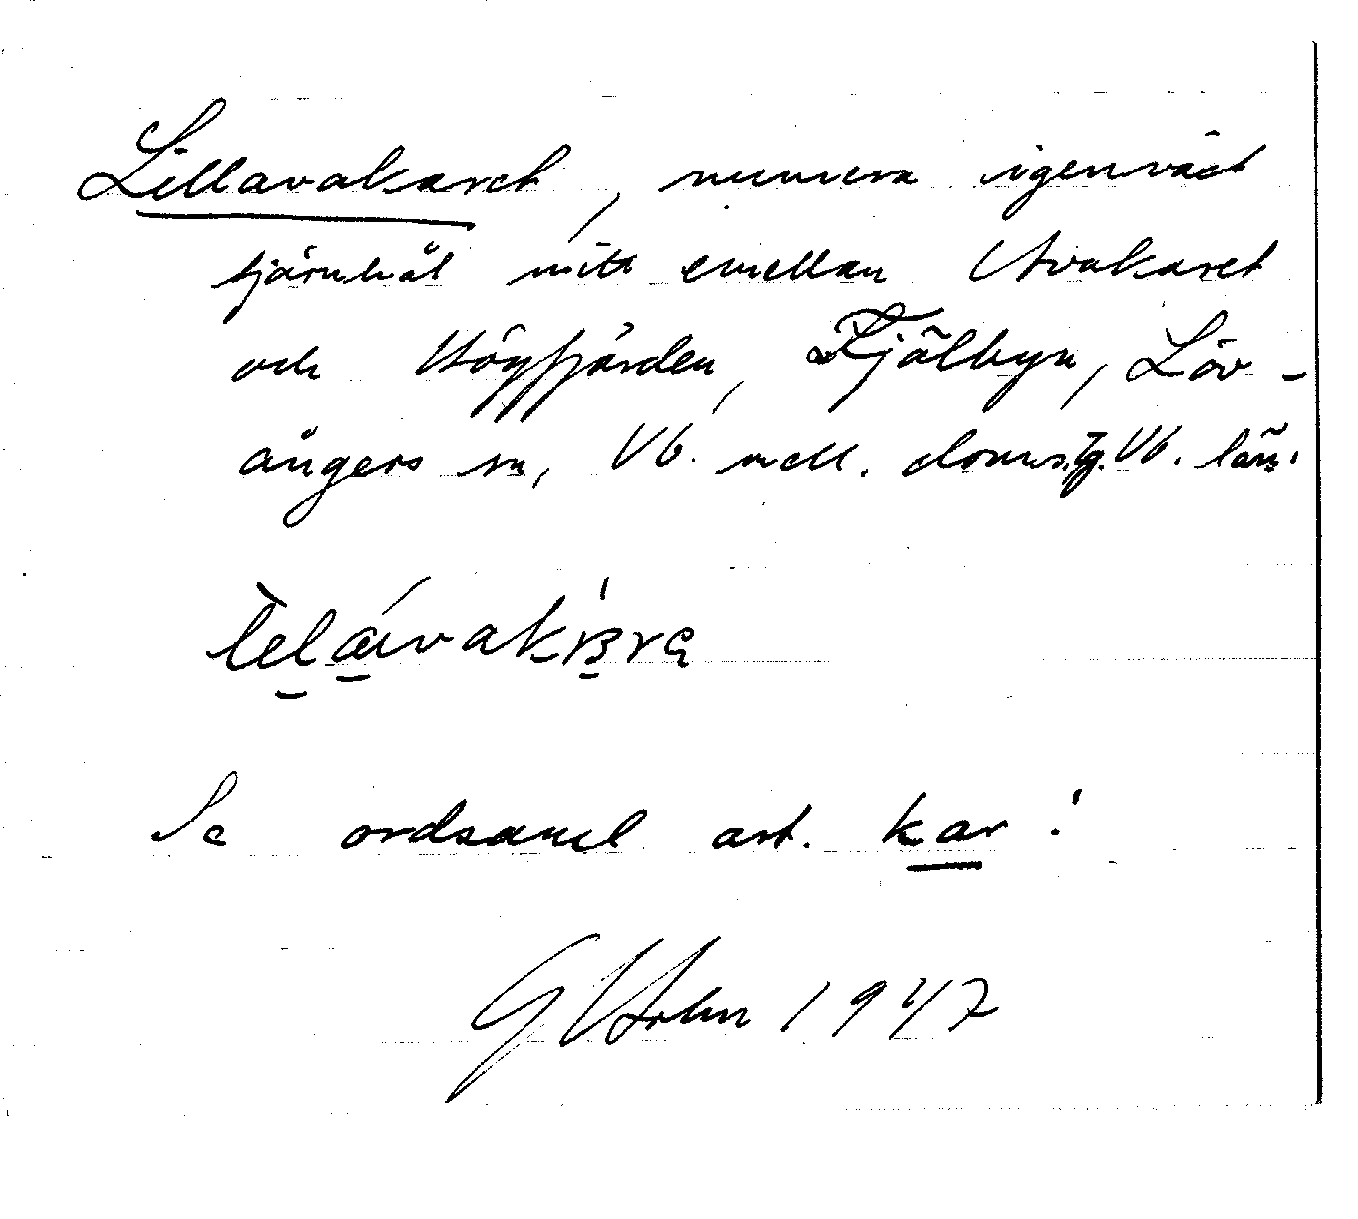 Lillavakaret, numera igenväxt
tjärnhål mitt emellan Avakaret
och Högfjärden, Fjälbyn, Löv-
ångers sn, Vb. mell. doms.g. Vb. län.
Se ordsaml art. kar!
G Holm 1947